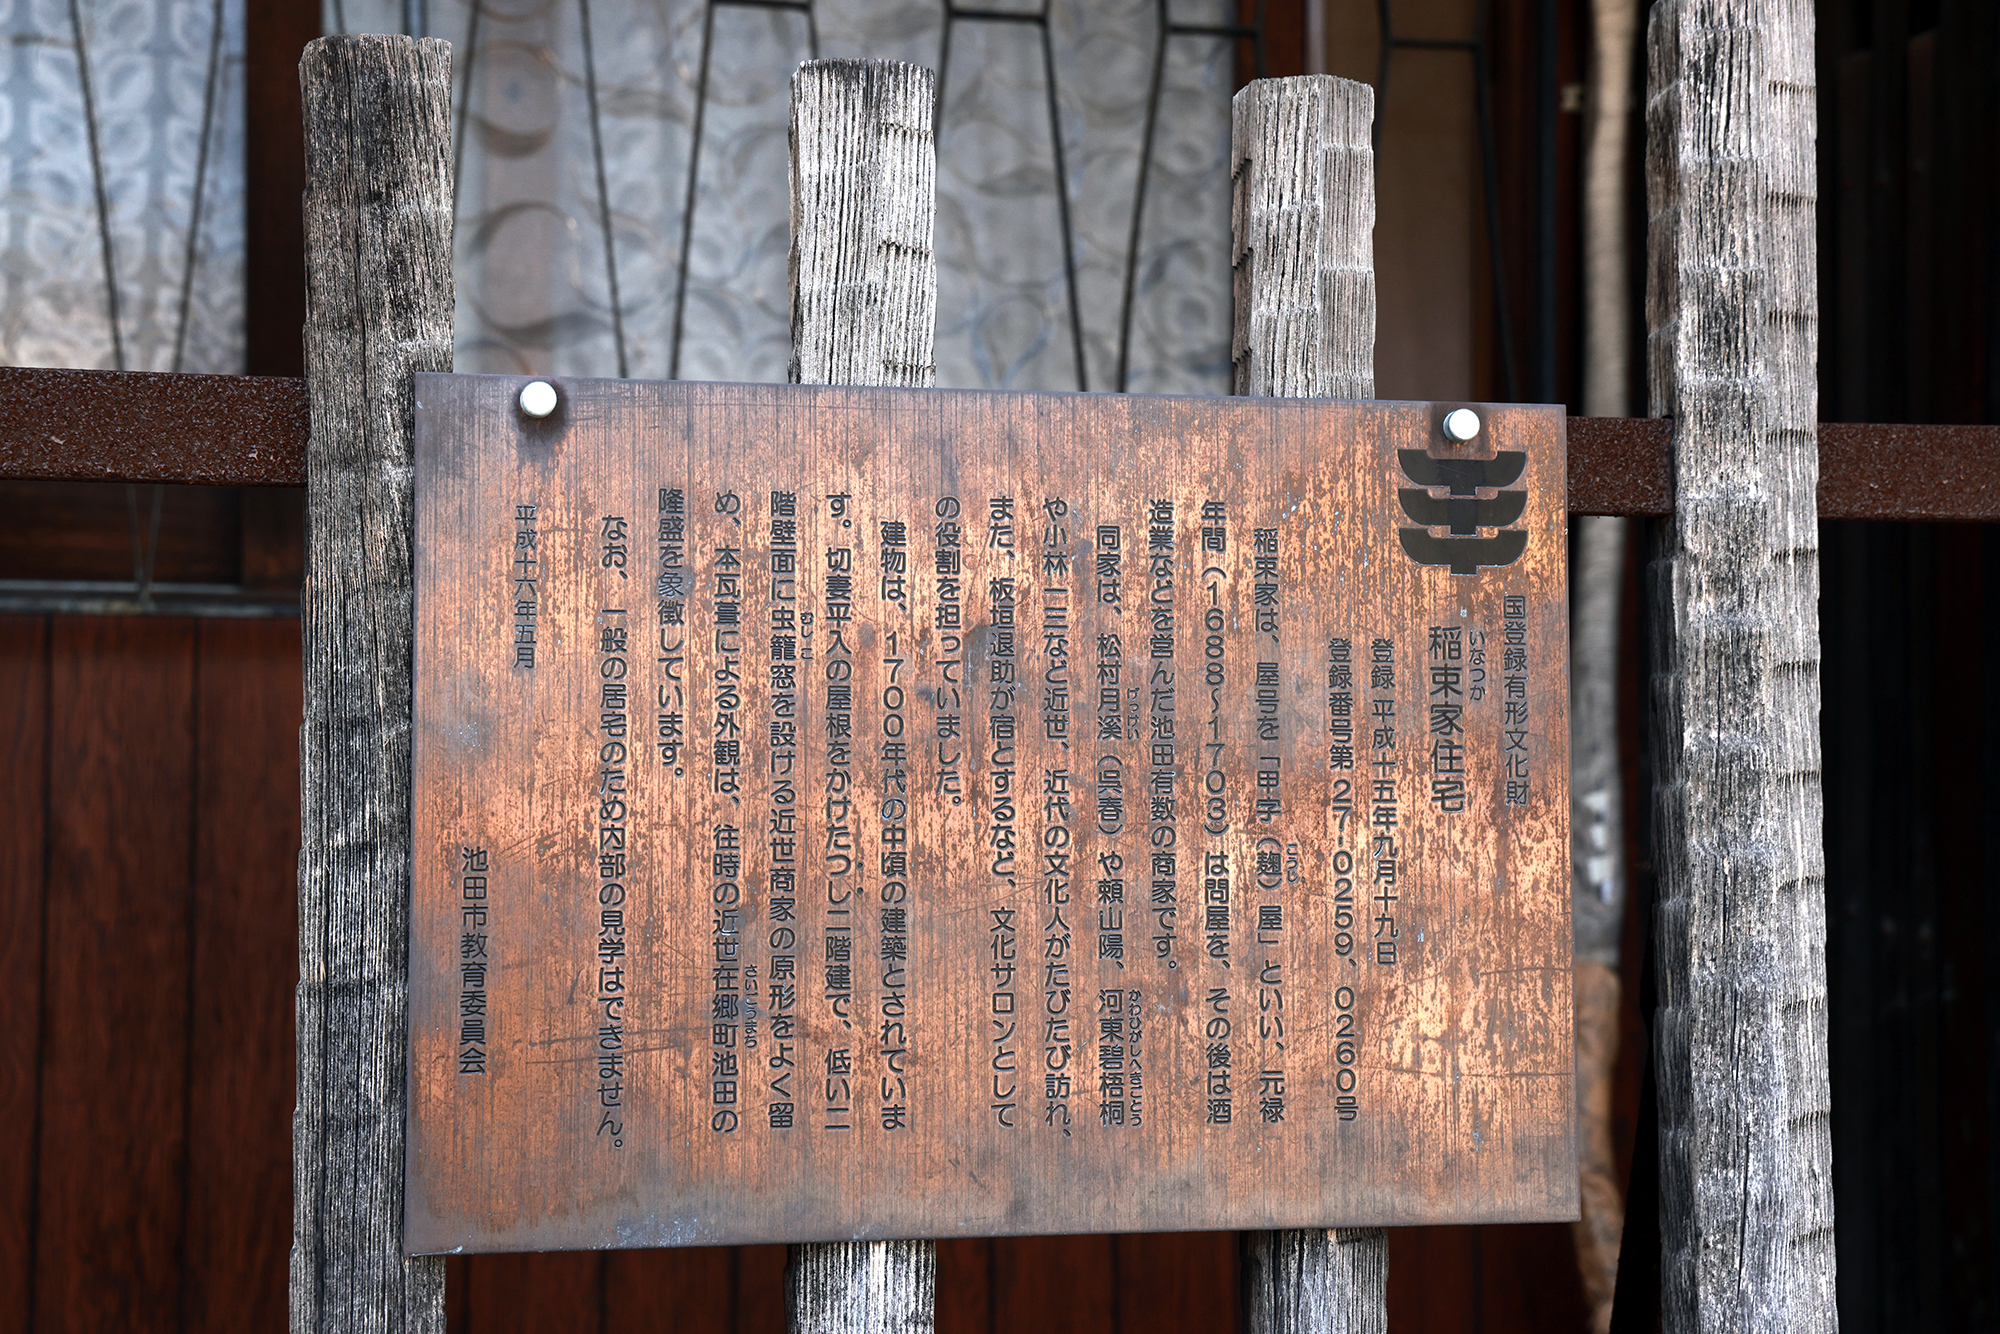 国登録有形文化財
いなつか
稲束家住宅
登録 平成十五年九月十九日
登録番号第27-0259、0260号
こうじ
稲束家は、屋号を「甲字(麹)屋」といい、元禄
年間(1688~1703)は問屋を、その後は酒
造業などを営んだ池田有数の商家です。
げっけい かわひがしへきごとう
同家は、松村月溪(呉春)や頼山陽、河東碧梧桐
や小林一三など近世、近代の文化人がたびたび訪れ、
また、板垣退助が宿とするなど、文化サロンとして
の役割を担っていました。
建物は、1700年代の中頃の建築とされていま
す。切妻平入の屋根をかけたつし二階建で、低い二
むしこ
階壁面に虫籠窓を設ける近世商家の原形をよく留
さいごうまち
め、本瓦葺による外観は、往時の近世在郷町池田の
隆盛を象徴しています。
なお、一般の居宅のため内部の見学はできません。
平成十六年五月
池田市教育委員会